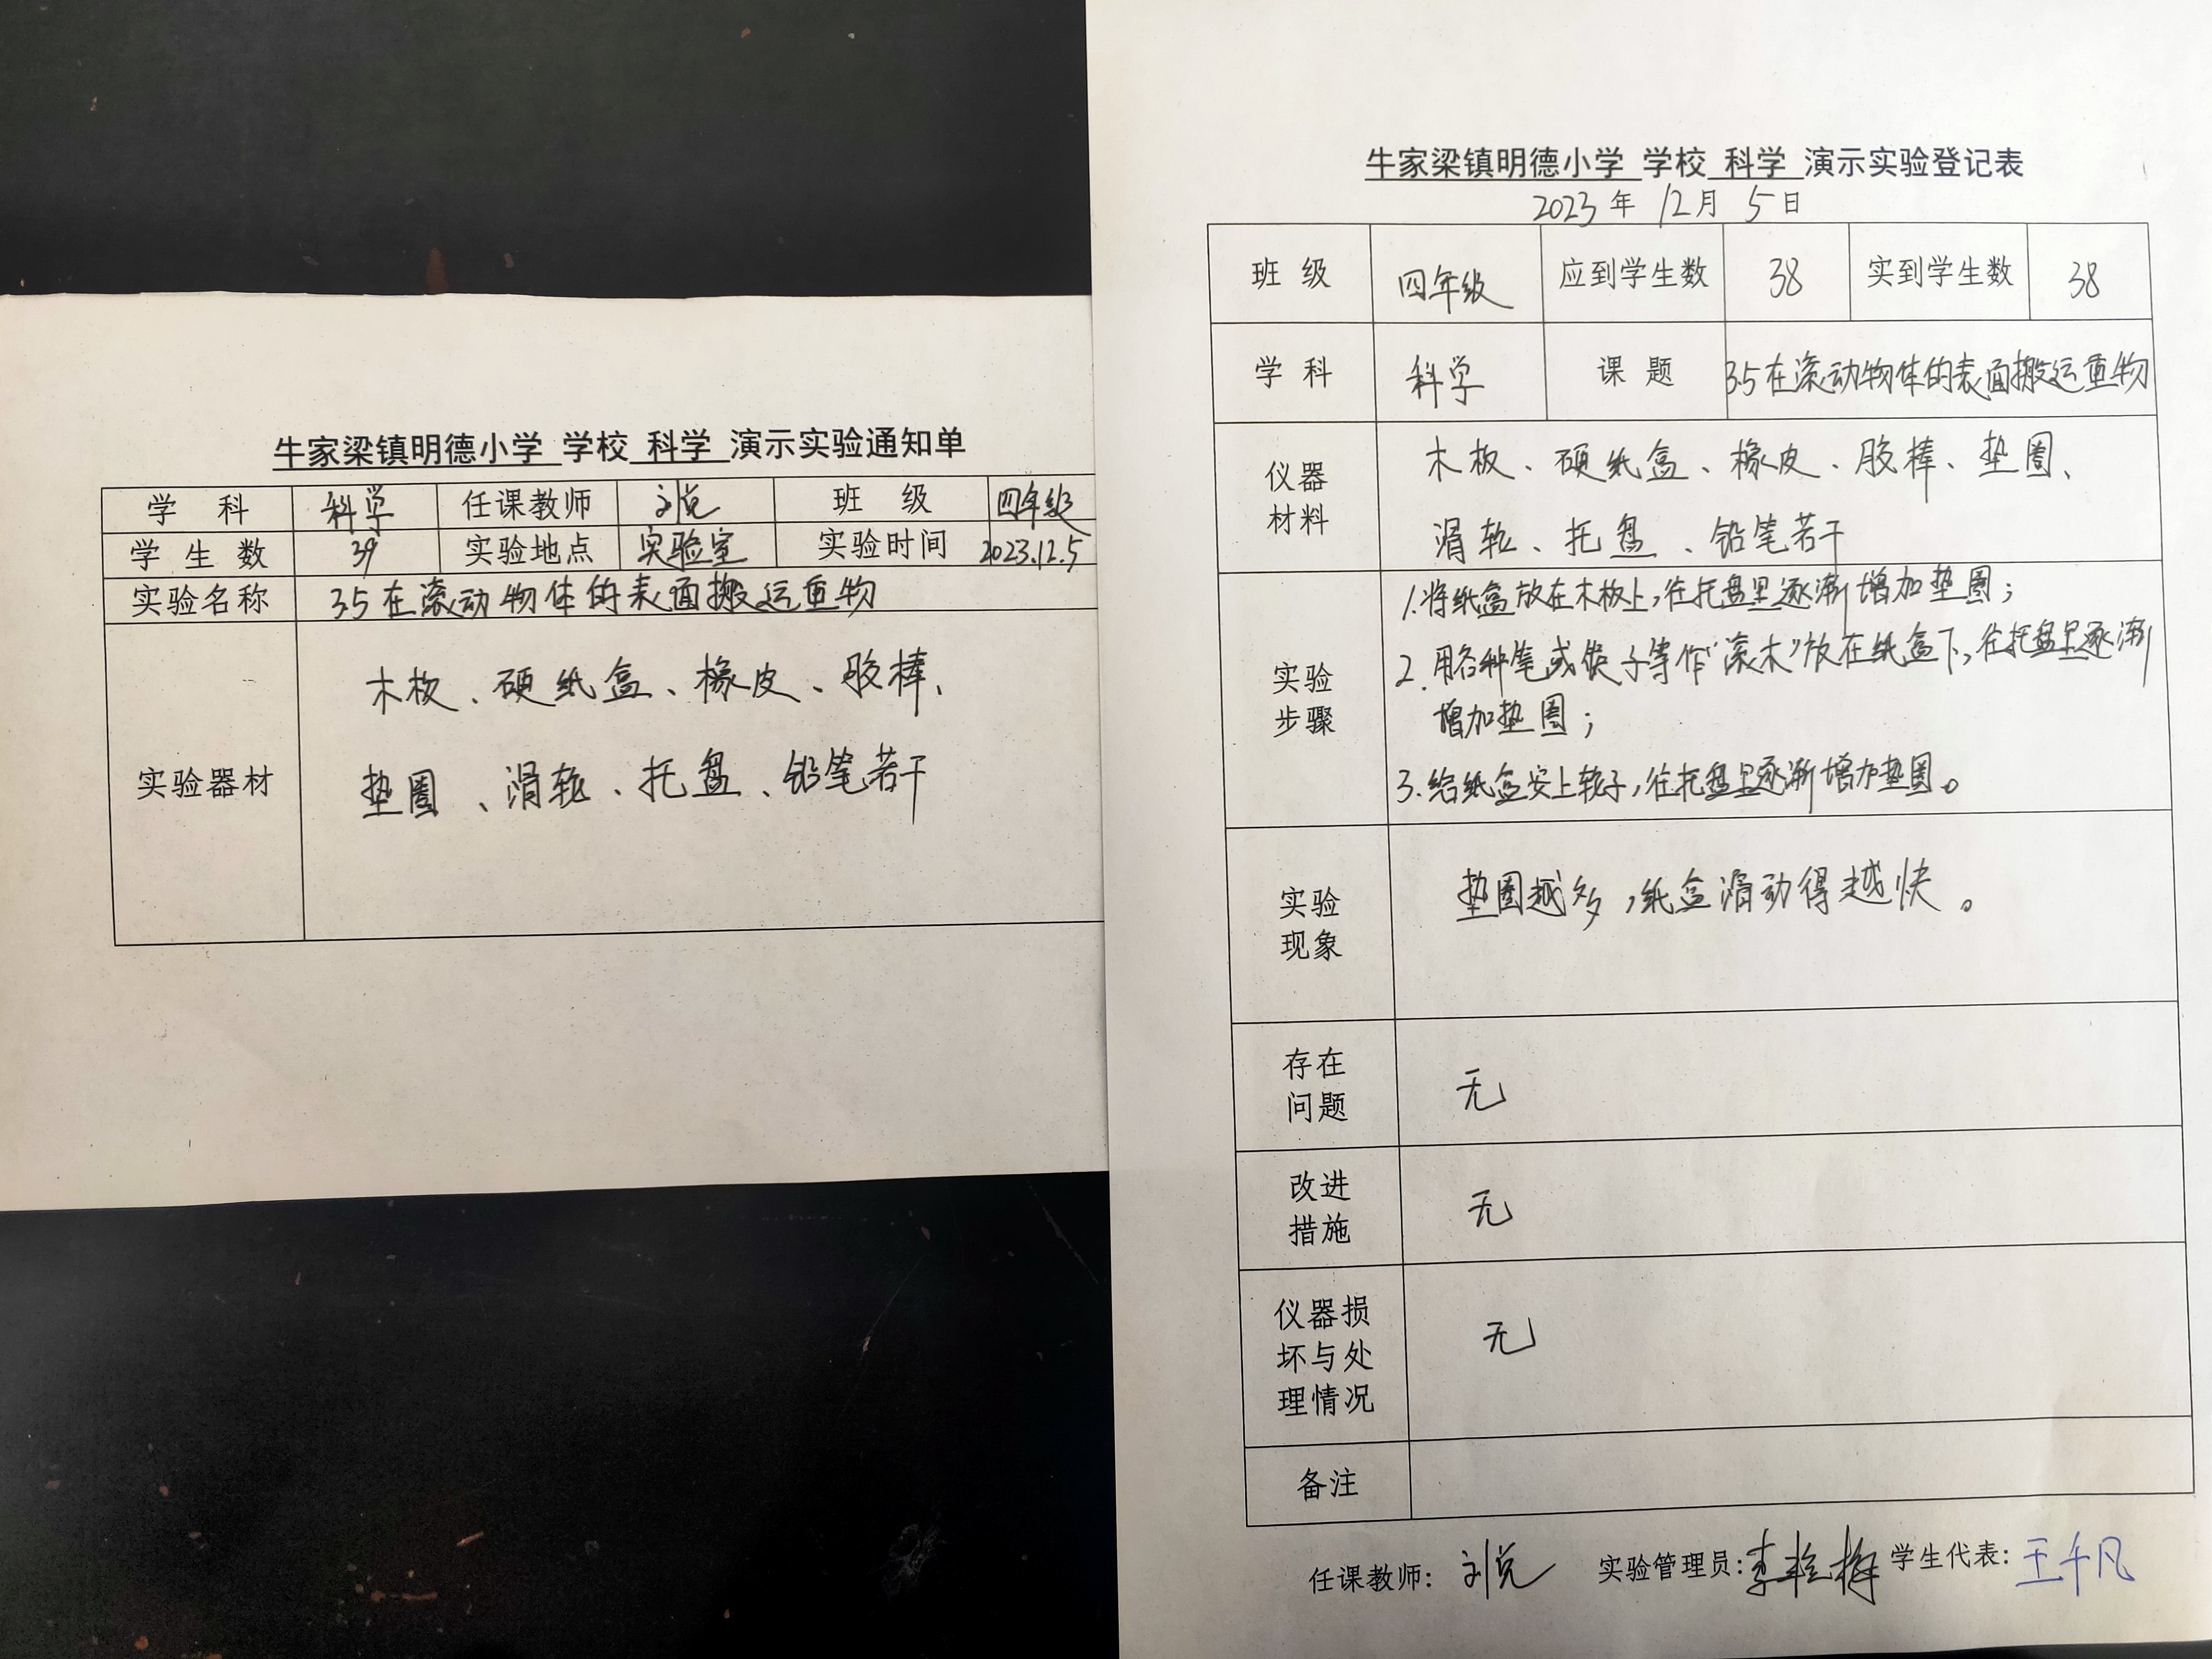 牛家梁镇明德小学 学校 科学 演示实验通知单
学 科 科学 任课教师 刘说 班 级 四年级
学 生 数 39 实验地点 实验室 实验时间 2023.12.5
实验名称 3.5在滚动物体的表面搬运重物
实验器材
木板、硬纸盒、橡皮、胶棒、
垫圈、滑轮、托盘、铅笔若干
牛家梁镇明德小学 学校 科学 演示实验登记表
2023年 12月 5日
班 级 四年级 应到学生数 38 实到学生数 38
学 科 科学 课 题 3.5在滚动物体的表面搬运重物
仪器
材料
木板、硬纸盒、橡皮、胶棒、垫圈、
滑轮、托盘、铅笔若干
实验
步骤
1.将纸盒放在木板上,往托盘里逐渐增加垫圈;
2.用各种笔或筷子等作“滚木”放在纸盒下,往托盘里逐渐
增加垫圈;
3.给纸盒安上轮子,往托盘里逐渐增加垫圈。
实验
现象
垫圈越多,纸盒滑动得越快。
存在
问题
无
改进
措施
无
仪器损
坏与处
理情况
无
备注
任课教师: 刘说 实验管理员: 学生代表: 王千凡